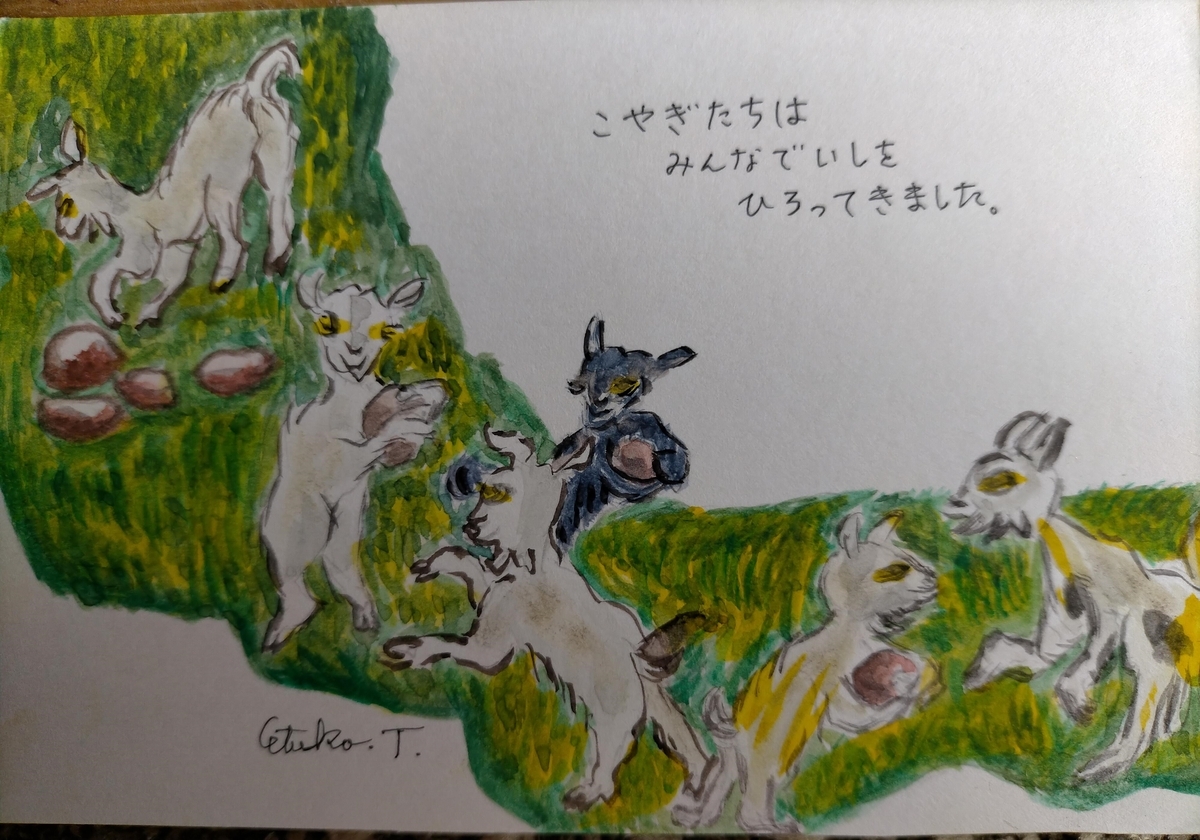 こやぎたちは
みんなでいしを
ひろってきました。
Etuko.T.